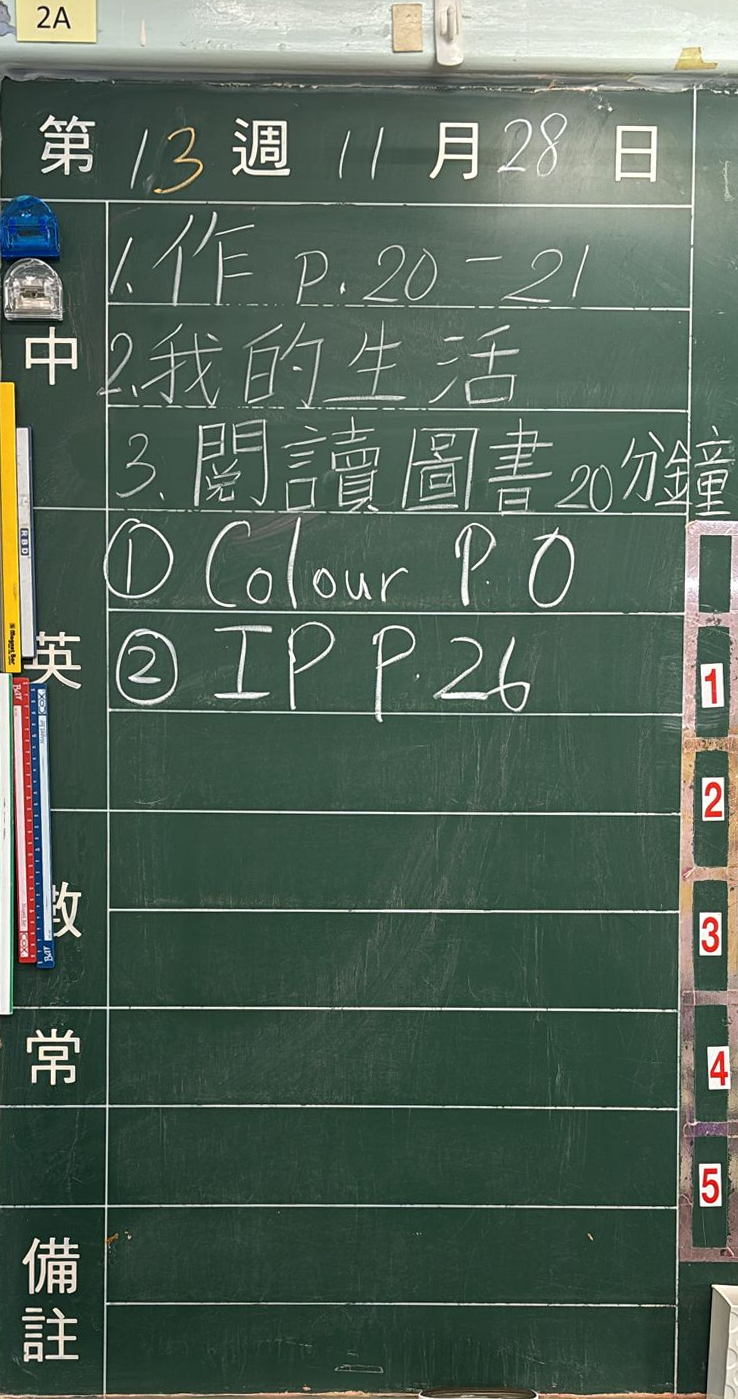 2A
第 13 週 11 月 28 日
中
1. 作 p. 20 - 21
2. 我的生活
3. 閱讀圖書 20分鐘
英
① Colour P. 0
② IP P. 26
數
常
備註
1
2
3
4
5